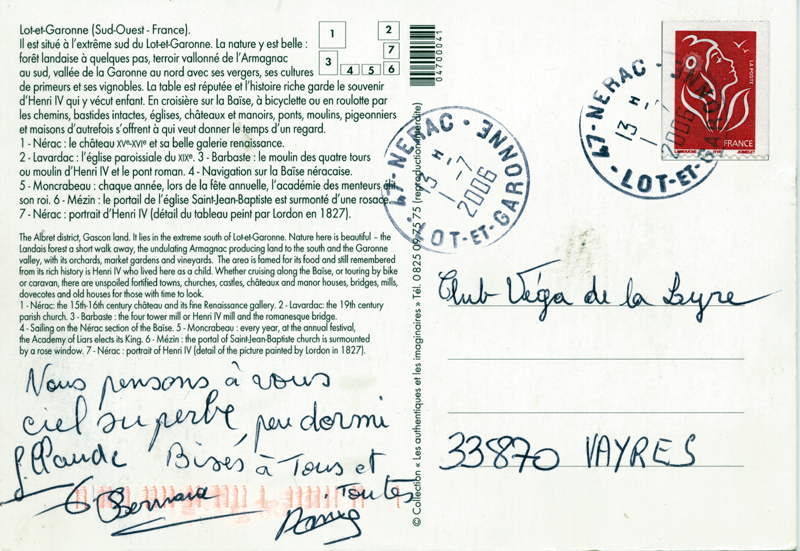 Lot-et-Garonne (Sud-Ouest - France).
Il est situé à l'extrême sud du Lot-et-Garonne. La nature y est belle :
forêt landaise à quelques pas, terroir vallonné de l'Armagnac
au sud, vallée de la Garonne au nord avec ses vergers, ses cultures
de primeurs et ses vignobles. La table est réputée et l'histoire riche garde le souvenir
d'Henri IV qui y vécut enfant. En croisière sur la Baïse, à bicyclette ou en roulotte par
les chemins, bastides intactes, églises, châteaux et manoirs, ponts, moulins, pigeonniers
et maisons d'autrefois s'offrent à qui veut donner le temps d'un regard.
1 - Nérac : le château XVe-XVIe et sa belle galerie renaissance.
2 - Lavardac : l'église paroissiale du XIXe. 3 - Barbaste : le moulin des quatre tours
ou moulin d'Henri IV et le pont roman. 4 - Navigation sur la Baïse néracaise.
5 - Moncrabeau : chaque année, lors de la fête annuelle, l'académie des menteurs élit
son roi. 6 - Mézin : le portail de l'église Saint-Jean-Baptiste est surmonté d'une rosace.
7 - Nérac : portrait d'Henri IV (détail du tableau peint par Lordon en 1827).
The Albret district, Gascon land. It lies in the extreme south of Lot-et-Garonne. Nature here is beautiful – the
Landais forest a short walk away, the undulating Armagnac producing land to the south and the Garonne
valley, with its orchards, market gardens and vineyards. The area is famed for its food and still remembered
from its rich history is Henri IV who lived here as a child. Whether cruising along the Baïse, or touring by bike
or caravan, there are unspoiled fortified towns, churches, castles, châteaux and manor houses, bridges, mills,
dovecotes and old houses for those with time to look.
1 - Nérac : the 15th-16th century château and its fine Renaissance gallery. 2 - Lavardac : the 19th century
parish church. 3 - Barbaste : the four tower mill or Henri IV mill and the romanesque bridge.
4 - Sailing on the Nérac section of the Baïse. 5 - Moncrabeau : every year, at the annual festival,
the Academy of Liars elects its King. 6 - Mézin : the portal of Saint-Jean-Baptiste church is surmounted
by a rose window. 7 - Nérac : portrait of Henri IV (detail of the picture painted by Lordon in 1827).
1 2
7
3 4 5 6
04700041
Nous pensons à vous
ciel superbe, peu dormi
Claude Bises à Tous et
Toutes
Bernard
© Collection « Les authentiques et les imaginaires » Tél. 0 825 09 75 75 (reproduction interdite)
47 - NERAC - LOT-ET-GARONNE
13 H
1 - 7
2006
47 - NERAC - LOT-ET-GARONNE
13 H
1 - 7
2006
LA POSTE
FRANCE
Club Véga de la Lyre
33870 VAYRES